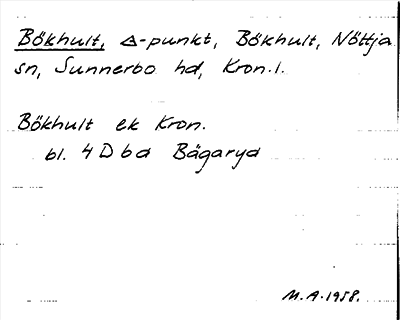 Bökhult, ∆-punkt, Bökhult, Nöttja
sn, Sunnerbo hd, Kron.l.
Bökhult ek Kron.
bl. 4 D b d Bägaryd
M.A. 1958.